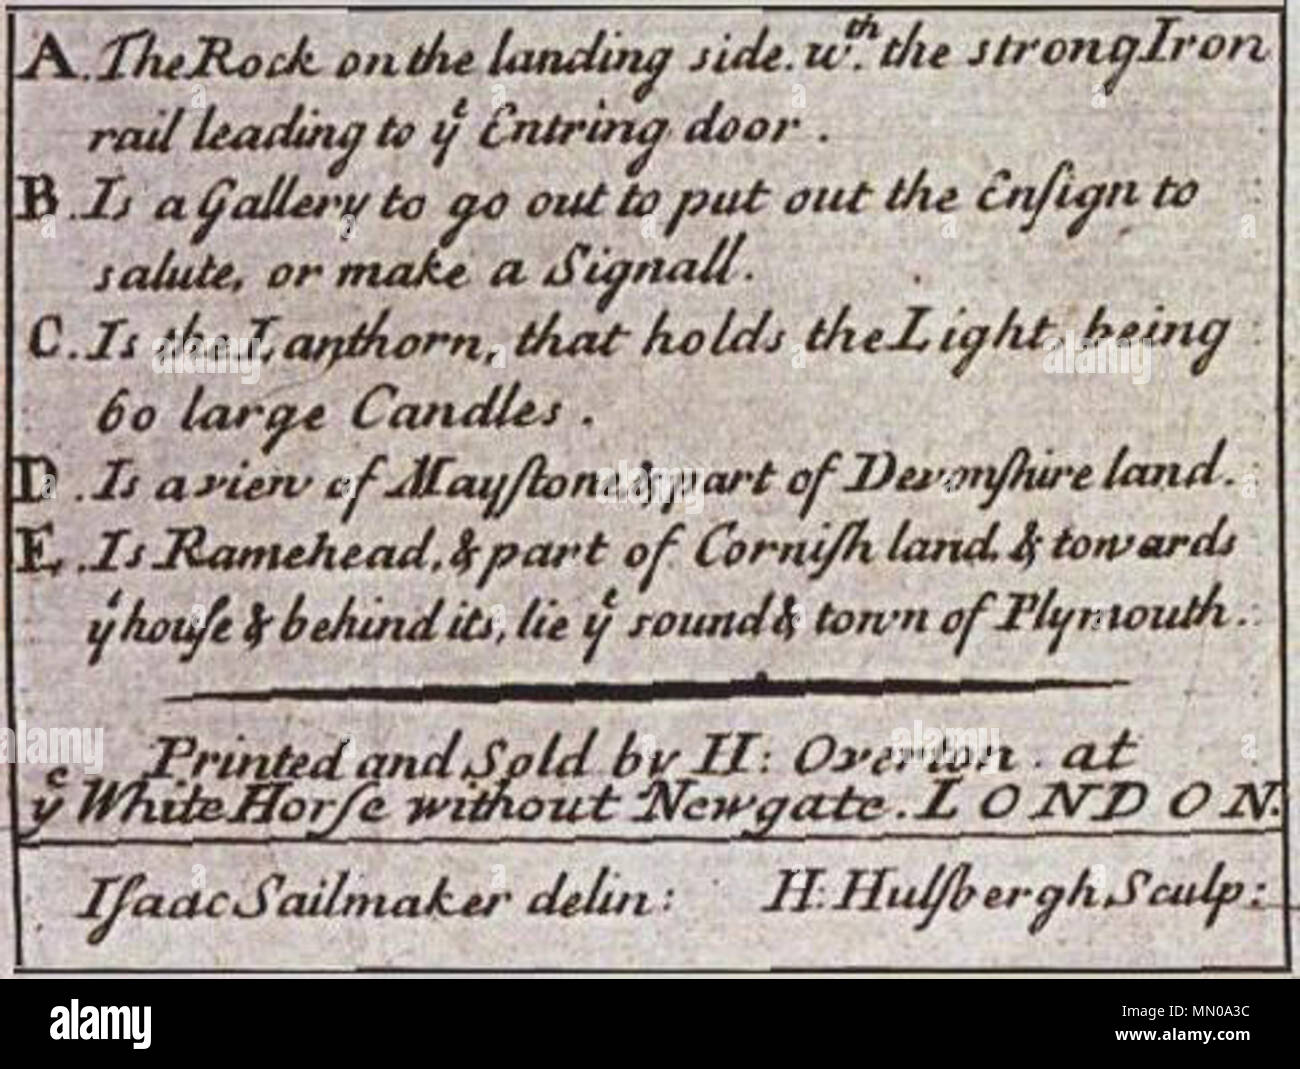 A. The Rock on the landing side. wth. the strong Iron
rail leading to ye Entring door.
B. Is a Gallery to go out to put out the Enſign to
salute, or make a Signall.
C. Is the Lanthorn, that holds the Light, being
60 large Candles.
D. Is a view of Mayſtone & part of Devonſhire land.
E. Is Ramehead, & part of Corniſh land. & towards
ye houſe & behind its, lie ye sound & town of Plymouth.
Printed and Sold by H: Overton. at
ye White Horſe without Newgate. LONDON.
Iſaac Sailmaker delin: H: Hulſbergh Sculp:
alamy
Image ID: MN0A3C
www.alamy.com